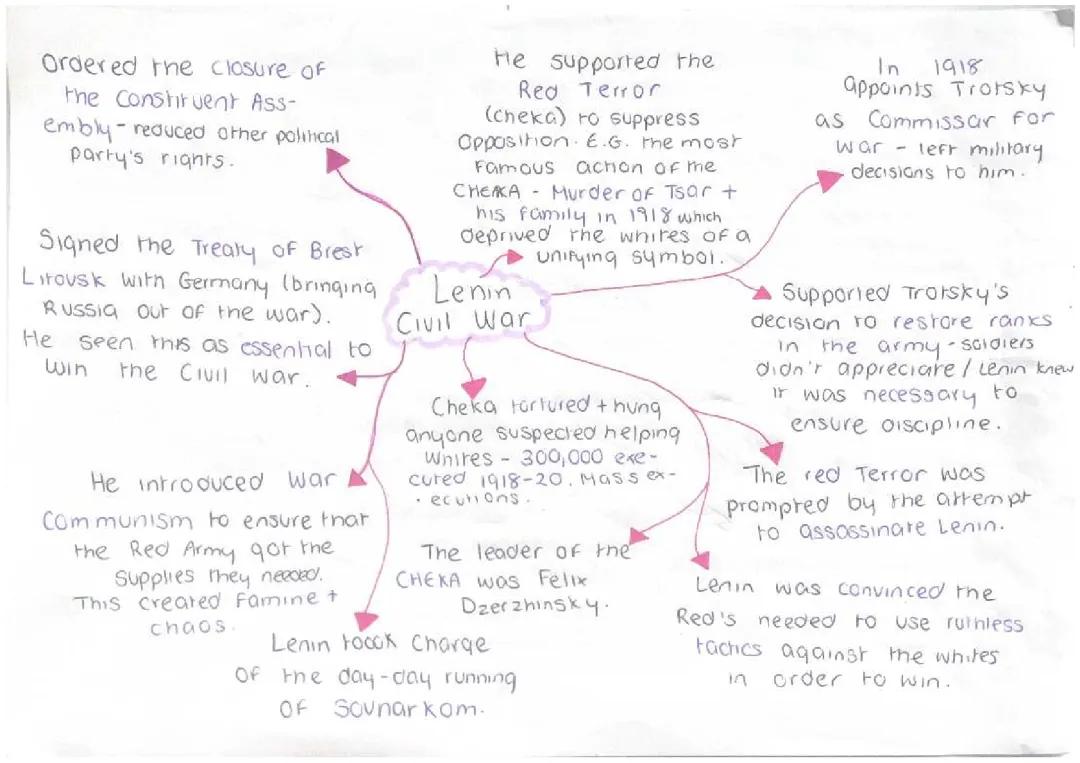 Ordered the closure of
the Constituent Ass-
embly - reduced other political
party's rights.
He supported the
Red Terror
(cheka) to suppress
opposition. E.G. the most
famous action of the
CHEKA - Murder of Tsar +
his family in 1918 which
deprived the whites of a
unifying symbol.
In 1918
appoints Trotsky
as Commissar for
war - left military
decisions to him.
Signed the Treaty of Brest
Litovsk with Germany (bringing
Russia out of the war).
He seen this as essential to
win the Civil war.
Lenin
Civil War
Supported Trotsky's
decision to restore ranks
in the army - soldiers
didn't appreciate / Lenin knew
it was necessary to
ensure discipline.
Cheka tortured + hung
anyone suspected helping
whites - 300,000 exe-
cuted 1918-20. Mass ex-
ecutions.
The red Terror was
prompted by the attempt
to assassinate Lenin.
He introduced War
Communism to ensure that
the Red Army got the
supplies they needed.
This created famine +
chaos.
The leader of the
CHEKA was Felix
Dzerzhinsky.
Lenin was convinced the
Red's needed to use ruthless
tactics against the whites
in order to win.
Lenin toook charge
of the day-day running
of Sovnarkom.